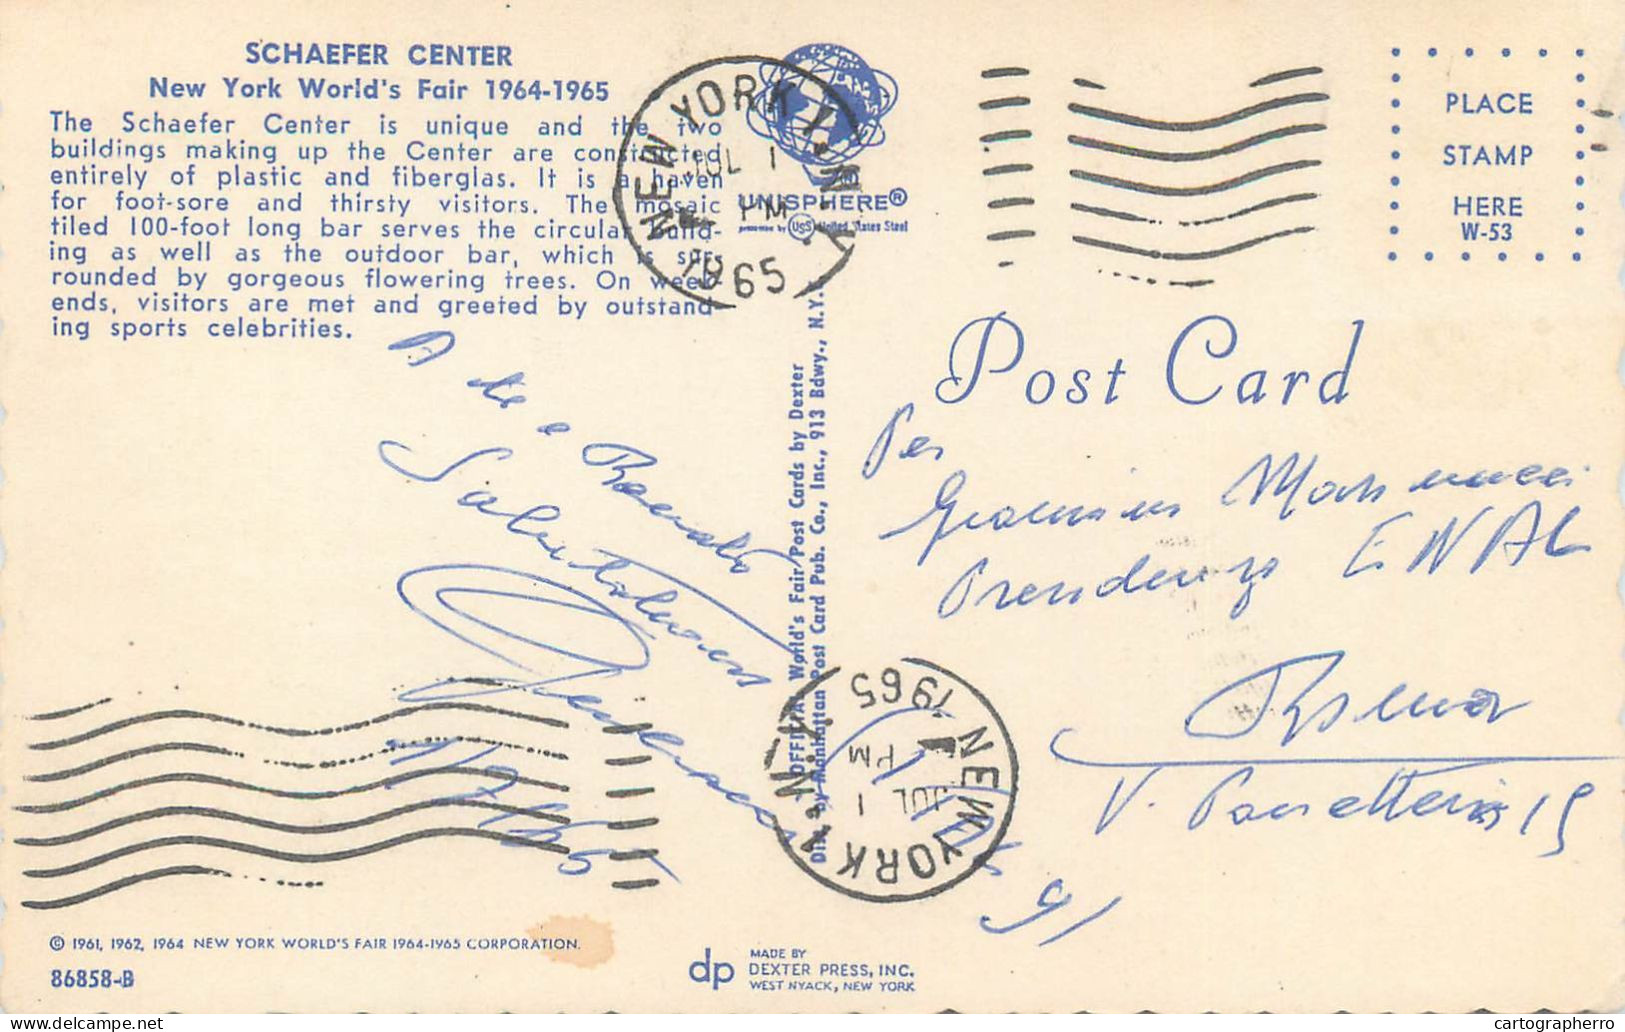 SCHAEFER CENTER
New York World's Fair 1964-1965
The Schaefer Center is unique and the two
buildings making up the Center are constructed
entirely of plastic and fiberglas. It is a haven
for foot-sore and thirsty visitors. The mosaic
tiled 100-foot long bar serves the circular build-
ing as well as the outdoor bar, which is sur-
rounded by gorgeous flowering trees. On week-
ends, visitors are met and greeted by outstand-
ing sports celebrities.
NEW YORK 1, N.Y.
JUL 1
PM
1965
UNISPHERE®
presented by USS United States Steel
PLACE
STAMP
HERE
W-53
Post Card
A te e
Salutations
1/7/65
OFFICIAL World's Fair/Post Cards by Dexter
Dist. by Manhattan Post Card Pub. Co., Inc., 913 Bdwy., N.Y.C.
Per
ENAL
Roma
V. Panetteria 15
NEW YORK 1, N.Y.
JUL 1
PM
1965
© 1961, 1962, 1964 NEW YORK WORLD'S FAIR 1964-1965 CORPORATION.
86858-B
dp
MADE BY
DEXTER PRESS, INC.
WEST NYACK, NEW YORK
cartographerro